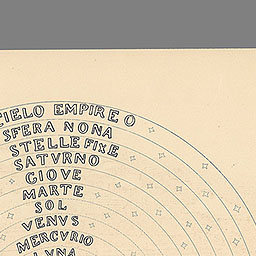 CIELO EMPIREO
SFERA NONA
STELLE FIXE
SATVRNO
GIOVE
MARTE
SOL
VENVS
MERCVRIO
LVNA